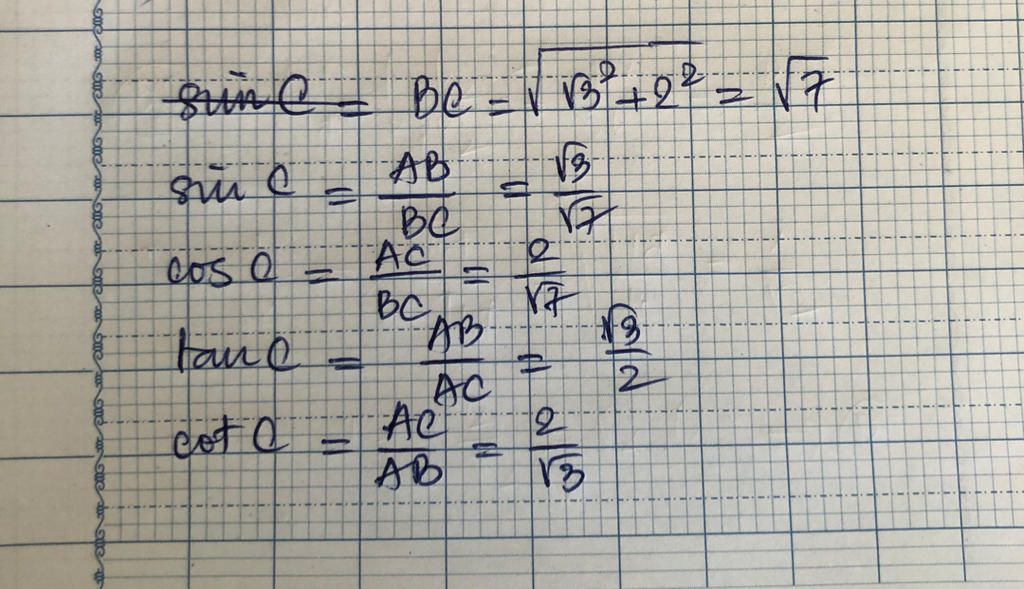 sin C = BC = √(√3² + 2²) = √7
sin C = AB/BC = √3/√7
cos C = AC/BC = 2/√7
tan C = AB/AC = √3/2
cot C = AC/AB = 2/√3